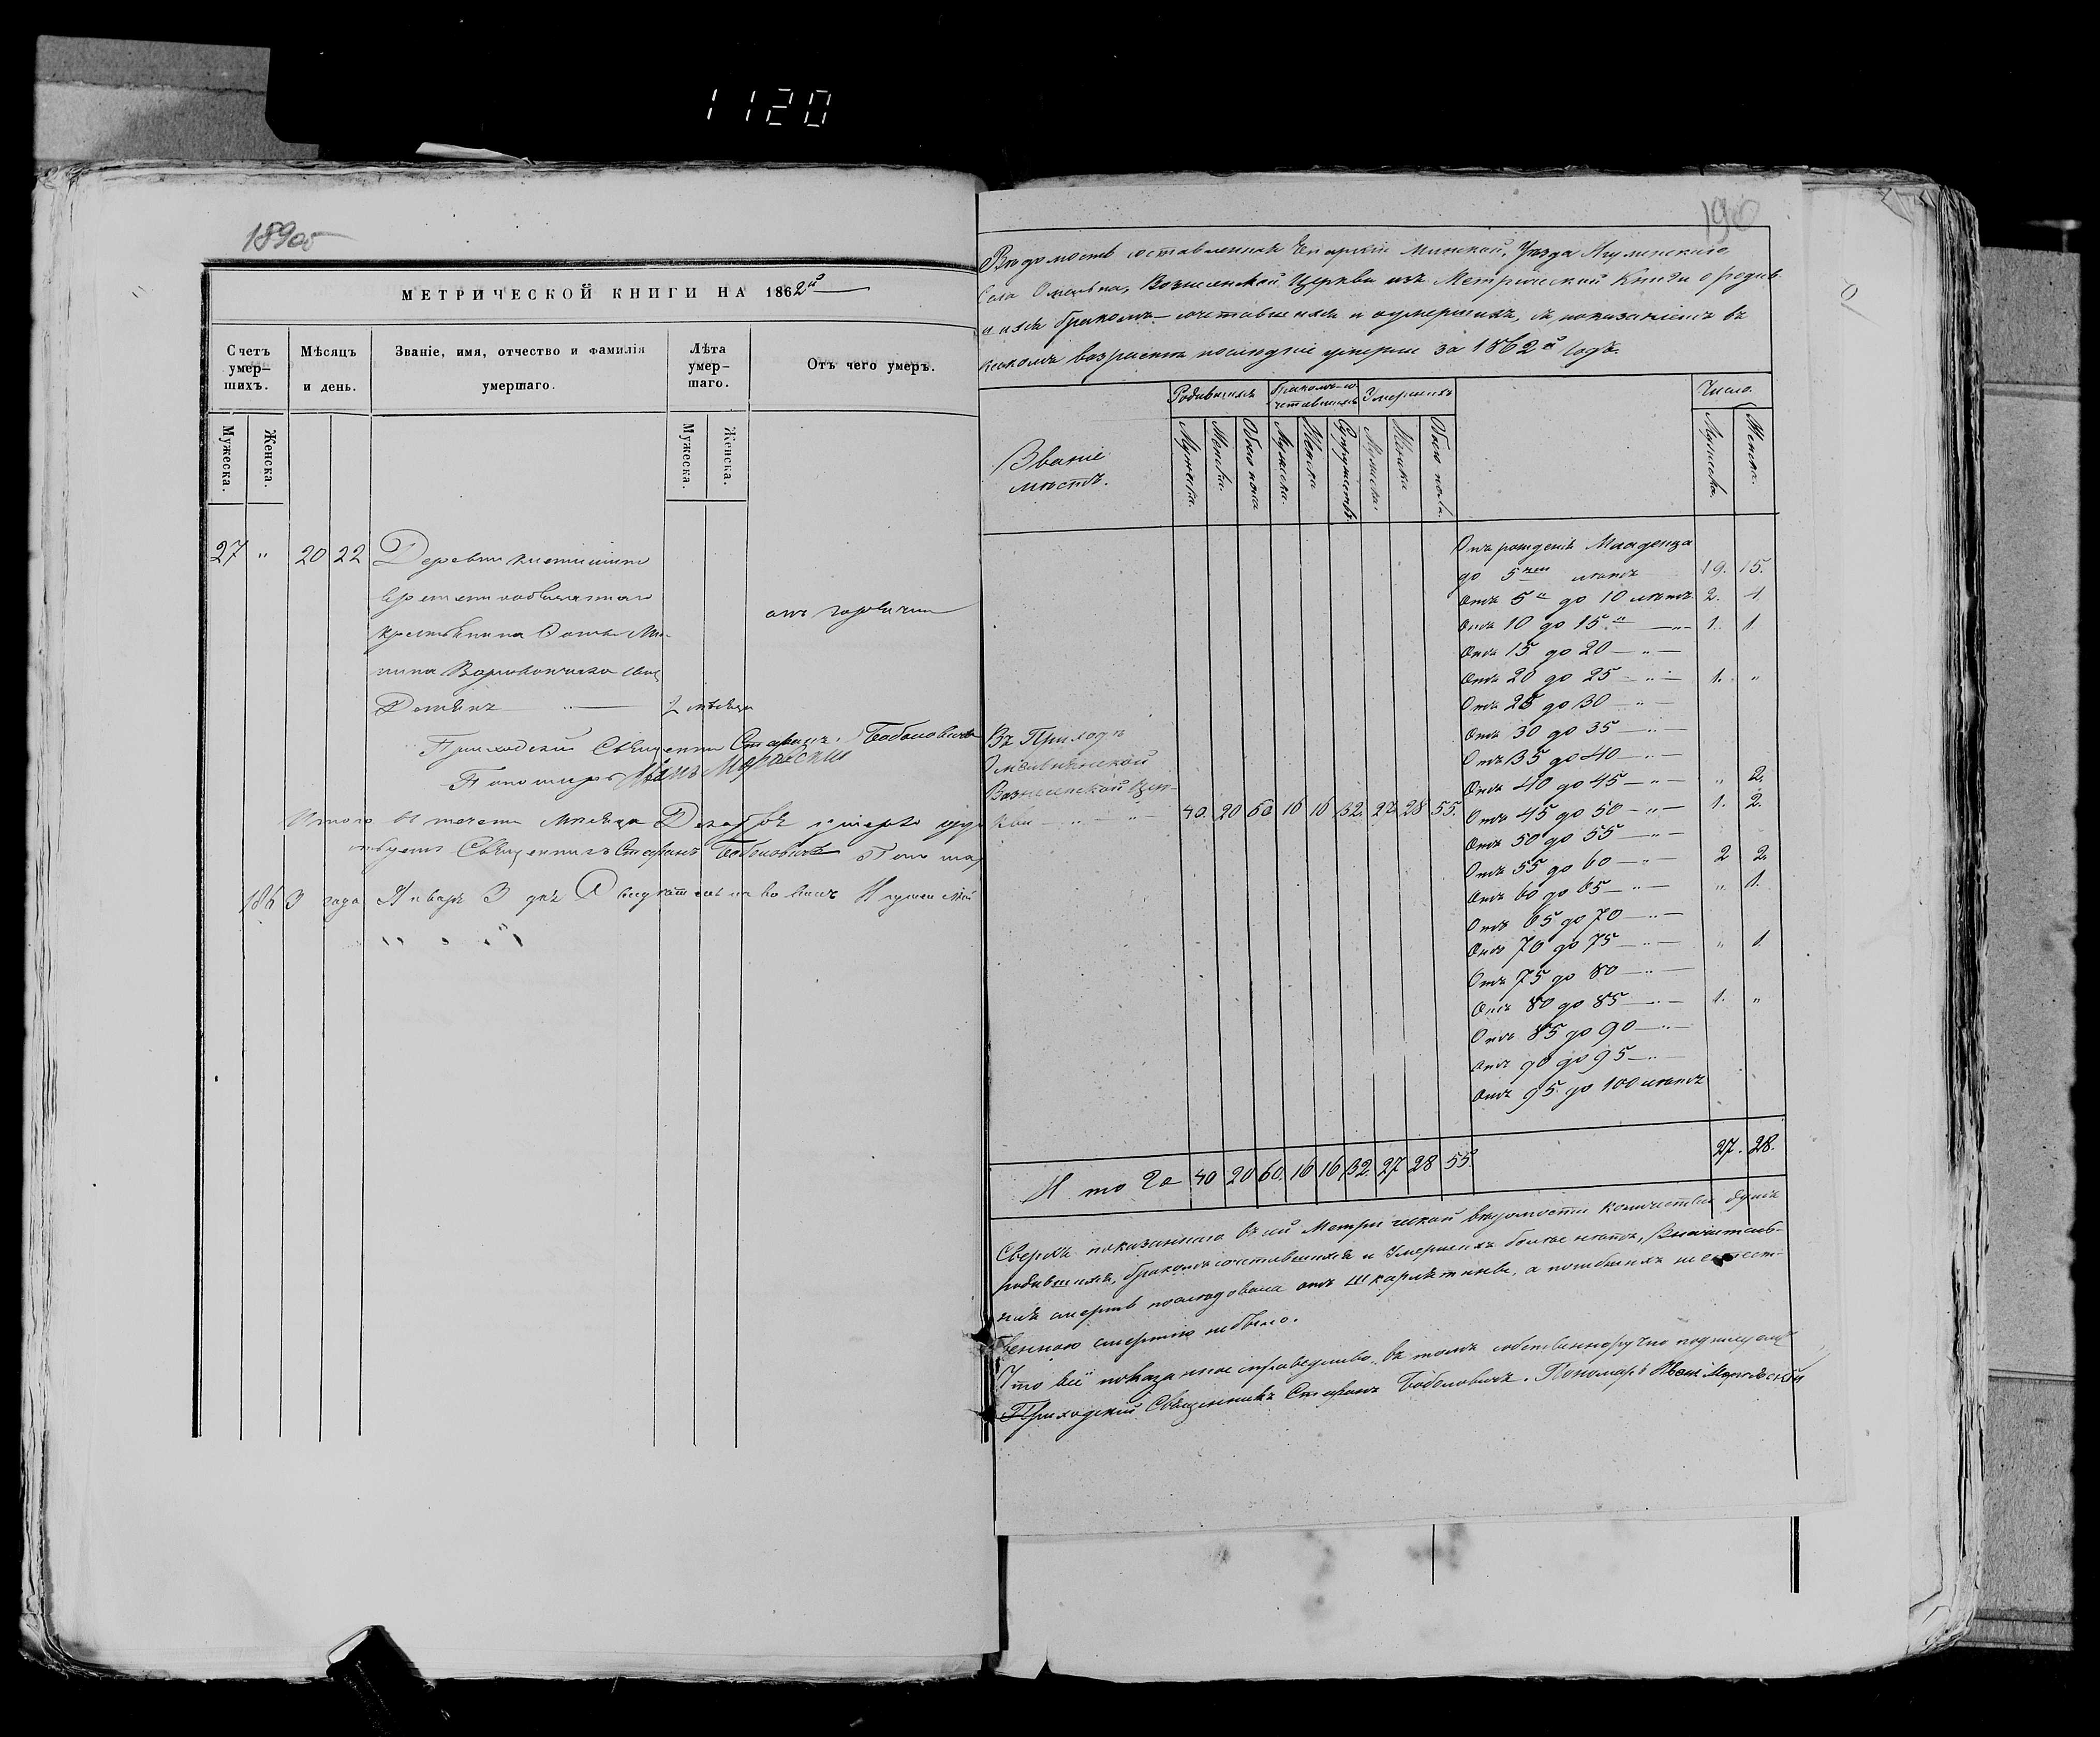 1120
189об
МЕТРИЧЕСКОЙ КНИГИ НА 1862й
Счетъ умер-шихъ.
Мѣсяцъ и день.
Званіе, имя, отчество и фамилія умершаго.
Лѣта умер-шаго.
Отъ чего умеръ.
Мужеска.
Женска.
Мужеска.
Женска.
27 " 20 22 Деревни
крестьянина
отъ горячки
2 мѣсяца
Приходскій Священникъ Стефанъ Боболовичъ
Пономарь Иванъ
Итого въ теченіи Мѣсяца Декабрѣ умерло
Священникъ Стефанъ Боболовичъ
1863 года Январѣ 3 дня
190
Вѣдомость составленная Епархіи Минской, Уѣзда Игуменскаго
Села Омельна, Вознесенской Церкви изъ Метрической Книги о родив-
шихся бракомъ-сочетавшихся и умершихъ, съ показаніемъ въ
какомъ возрастѣ послѣдніе умерли за 1862й годъ.
Званіе мѣстъ.
Родившихся
бракомъ-со-четавшихся
Умершихъ
Число.
Мужеска.
Женска.
Обоего пола
Мужеска.
Женска
Супружествъ.
Мужеска.
Женска
Обоего пола.
Мужеска.
Женска.
Отъ рожденія Младенца
до 5ти лѣтъ 19. 15.
Отъ 5и до 10 лѣтъ 2. 4
Отъ 10 до 15 " — " — 1. 1.
Отъ 15 до 20 — " —
Отъ 20 до 25 — " — 1. "
Отъ 25 до 30 — " —
Отъ 30 до 35 — " —
Отъ 35 до 40 — " —
Отъ 40 до 45 — " — " 2.
Отъ 45 до 50 — " — 1. 2.
Отъ 50 до 55 — " —
Отъ 55 до 60 — " — 2 2.
Отъ 60 до 65 — " — " 1.
Отъ 65 до 70 — " —
Отъ 70 до 75 — " — " 1.
Отъ 75 до 80 — " —
Отъ 80 до 85 — " — 1. "
Отъ 85 до 90 — " —
Отъ 90 до 95 — " —
Отъ 95 до 100 лѣтъ
Въ Приходѣ
Омельнянской
Вознесенской Цер-
кви — " — 40. 20 60 16 16 32. 27 28 55.
Итого 40 20 60. 16 16 32. 27 28 55. 27. 28.
Сверхъ показаннаго въ сей Метрической вѣдомости количества душъ
родившихся, бракомъ сочетавшихся и Умершихъ болѣе нѣтъ,
смерть послѣдовала отъ шкарлятины, а погибшихъ неестест-
венною смертію небыло.
Что всё показанное справедливо, въ томъ собственноручно подписуемся
Приходскій Священникъ Стефанъ Боболовичъ. Пономарь Иванъ